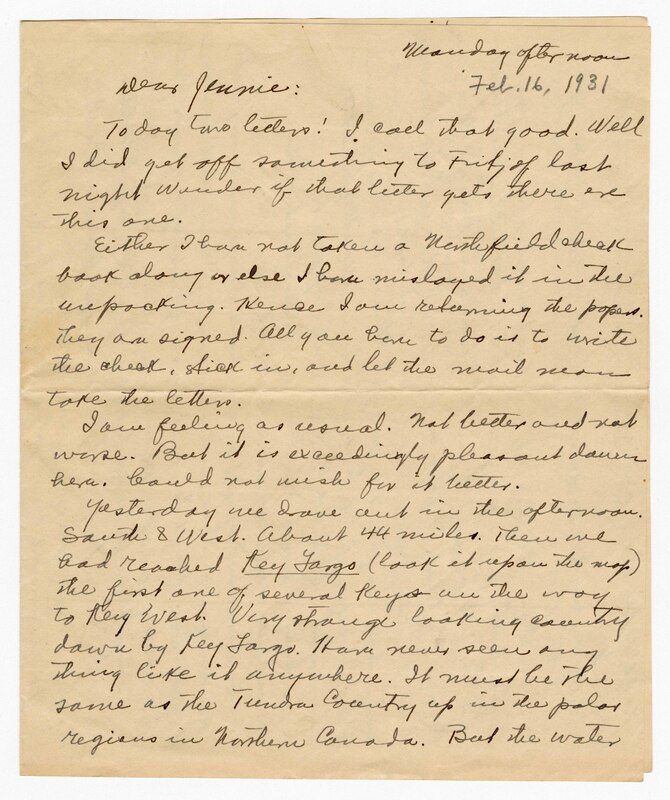 Monday afternoon
Feb. 16, 1931
Dear Jennie:
Today two letters! I call that good. Well
I did get off something to Fritjof last
night. Wonder if that letter gets there ere
this one.
Either I have not taken a Northfield check
book along or else I have mislayed it in the
unpacking. Hence I am returning the papers.
They are signed. All you have to do is to write
the check, stick in, and let the mail man
take the letters.
I am feeling as usual. Not better and not
worse. But it is exceedingly pleasant down
here. Could not wish for it better.
Yesterday we drove out in the afternoon.
South & West. About 44 miles. Then we
had reached Key Largo (look it up on the map)
the first one of several Keys on the way
to Key West. Very strange looking country
down by Key Largo. Have never seen any
thing like it anywhere. It must be the
same as the Tundra Country up in the polar
regions in Northern Canada. But the water